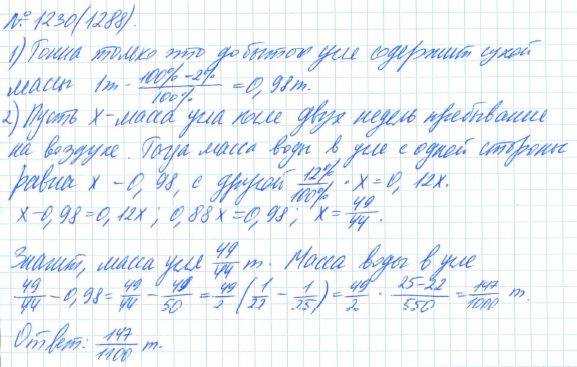 № 1230(1288).
1) Тонна только что добытого угля содержит сухой
массы 1т · (100% - 2%)/100% = 0,98т.
2) Пусть х - масса угля после двух недель пребывание
на воздухе. Тогда масса воды в угле с одной стороны
равна х - 0,98, с другой 12%/100% · х = 0,12х.
х - 0,98 = 0,12х ; 0,88х = 0,98 ; х = 49/44.
Значит, масса угля 49/44 т. Масса воды в угле
49/44 - 0,98 = 49/44 - 49/50 = 49/2 (1/22 - 1/25) = 49/2 · (25-22)/550 = 147/1000 т.
Ответ: 147/1100 т.